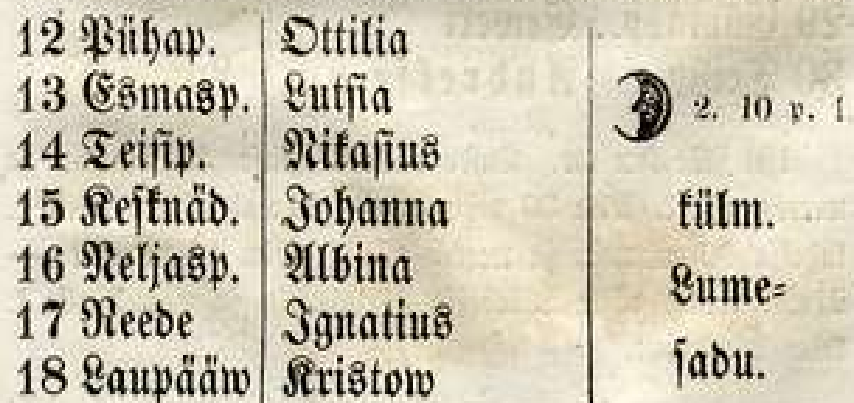 12 Pühap. Ottilia
13 Esmasp. Lutsia
2. 10 p. l
14 Teisip. Nikasius
15 Kesknäd. Johanna
külm.
16 Neljasp. Albina
Lume-
17 Reede Ignatius
18 Laupääw Kristow
sadu.